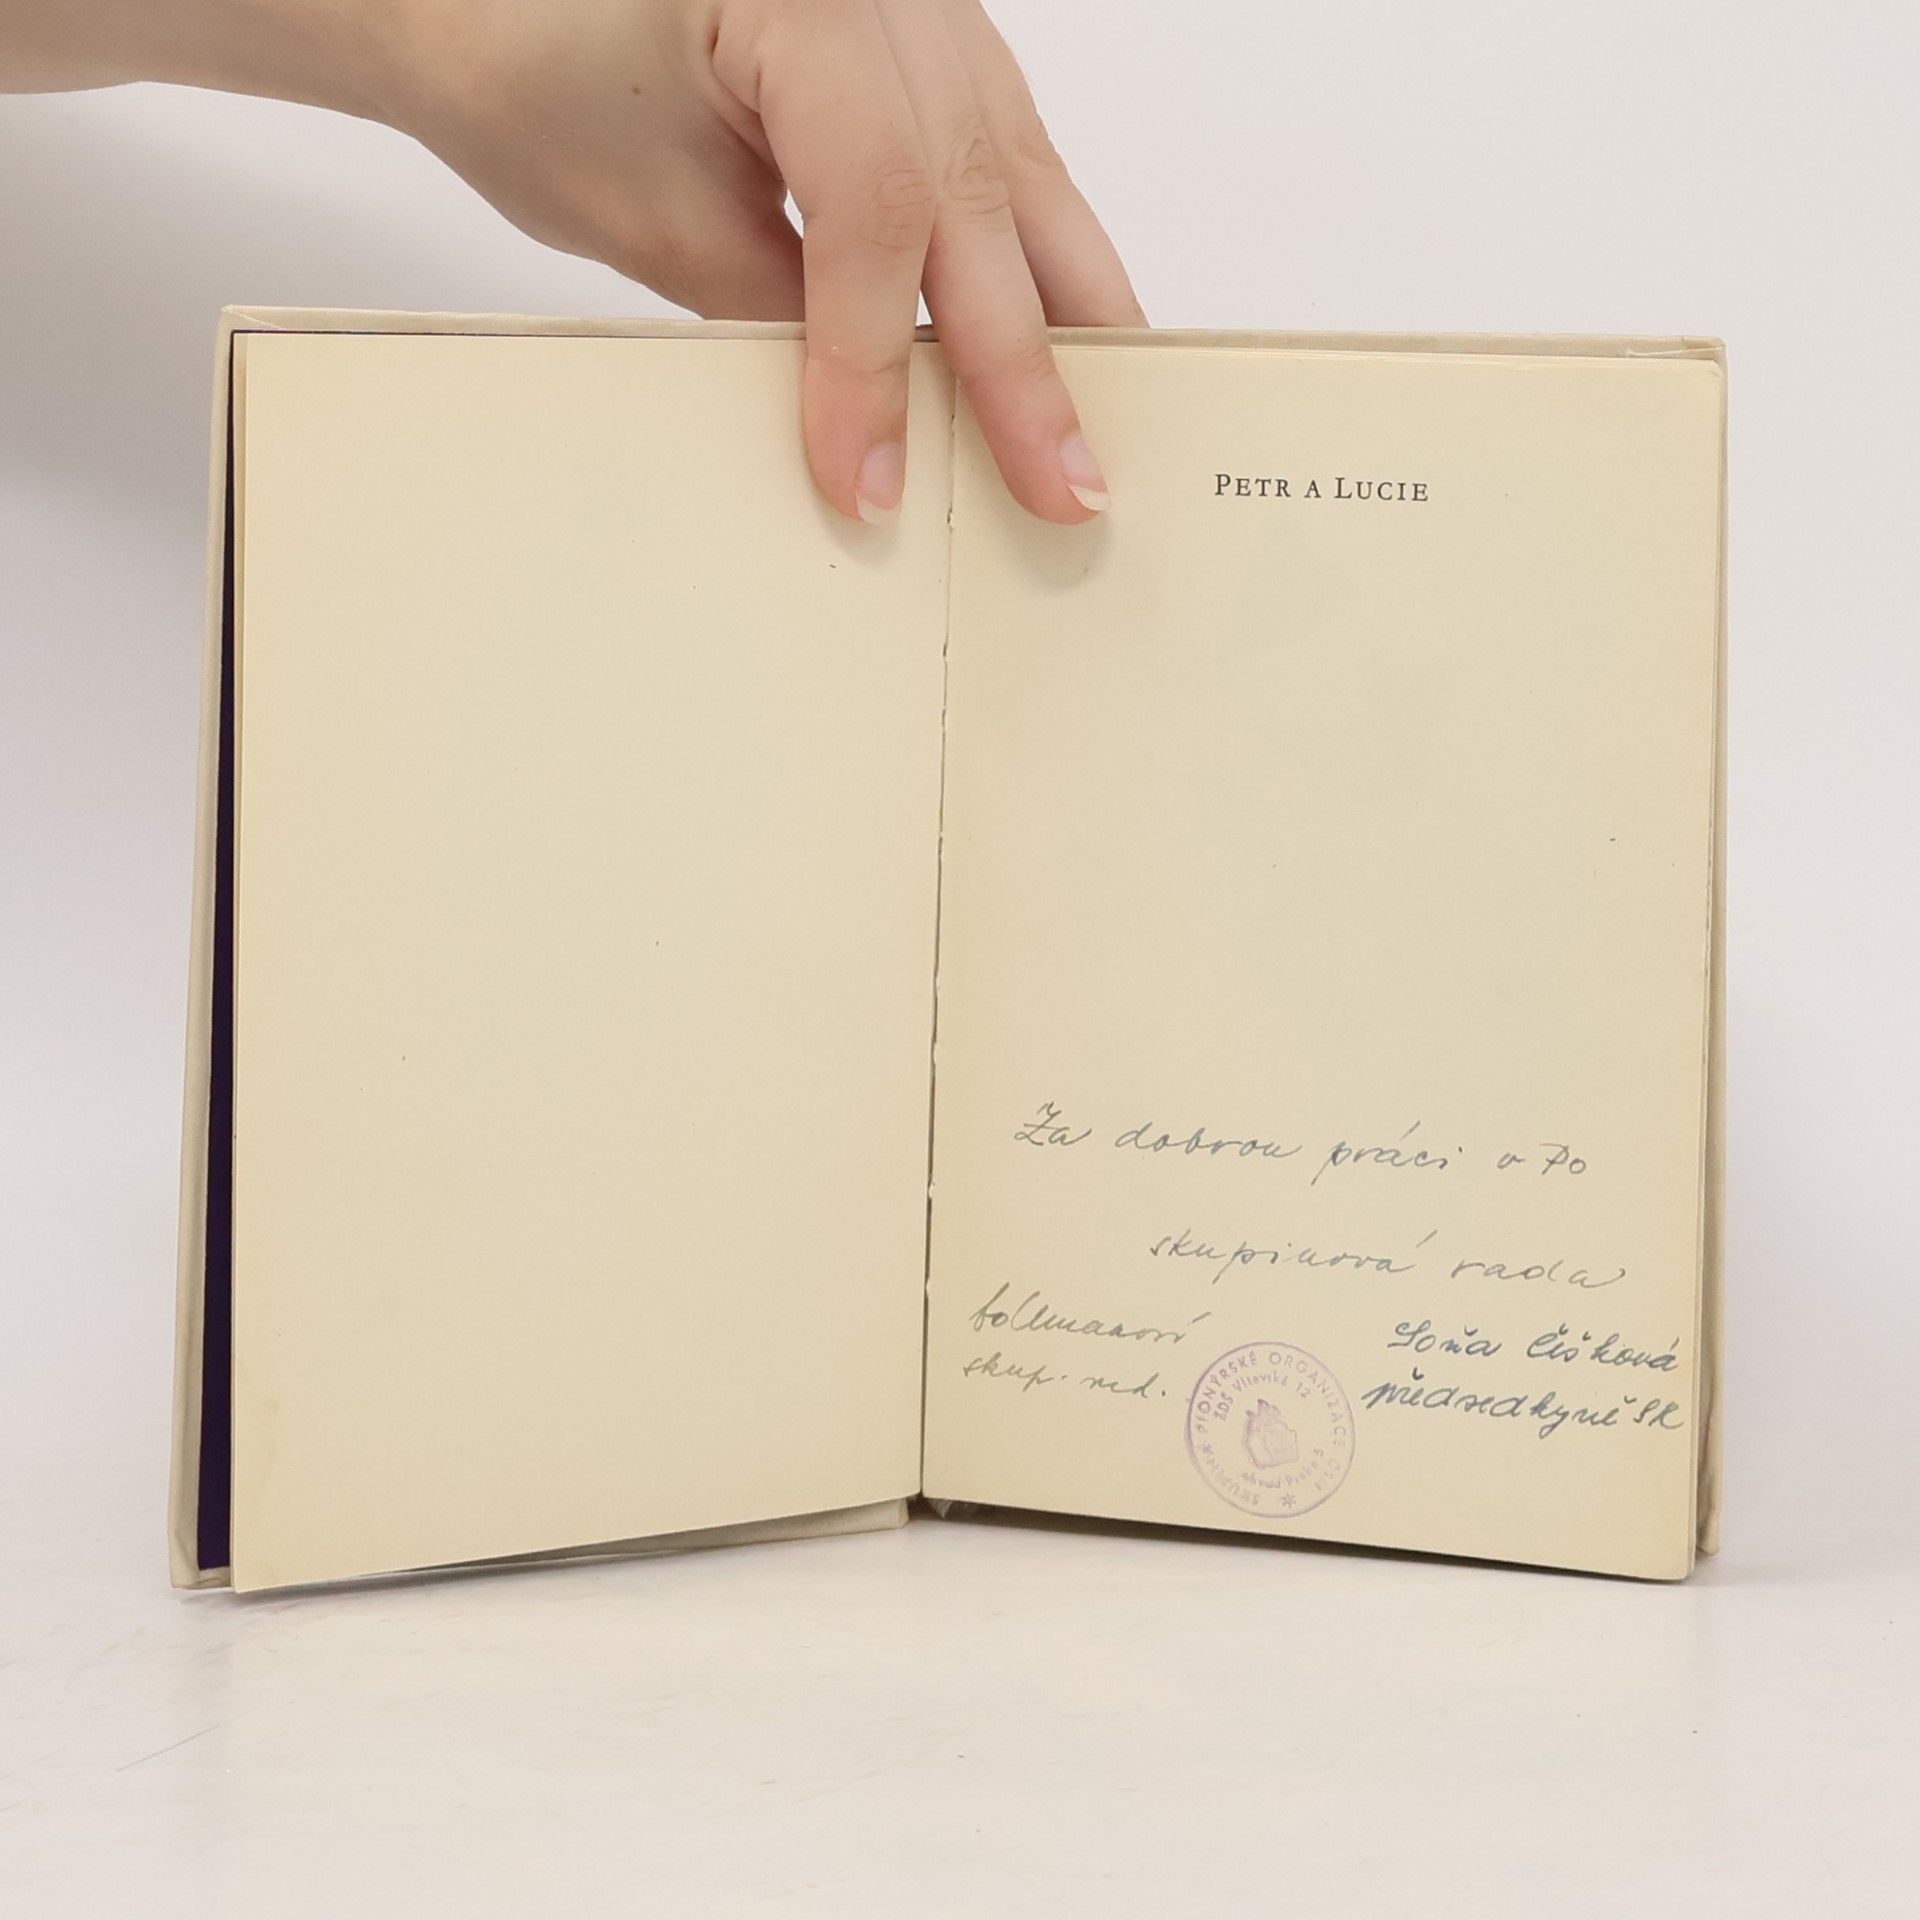 PETR A LUCIE
Za dobrou práci v Po
skupinová rada
skup. ved.
Soňa Číšková
předsedkyně SR
SKUPINA PIONÝRSKÉ ORGANIZACE ČSM
ZDŠ Vltavská 12
obvod Praha 5